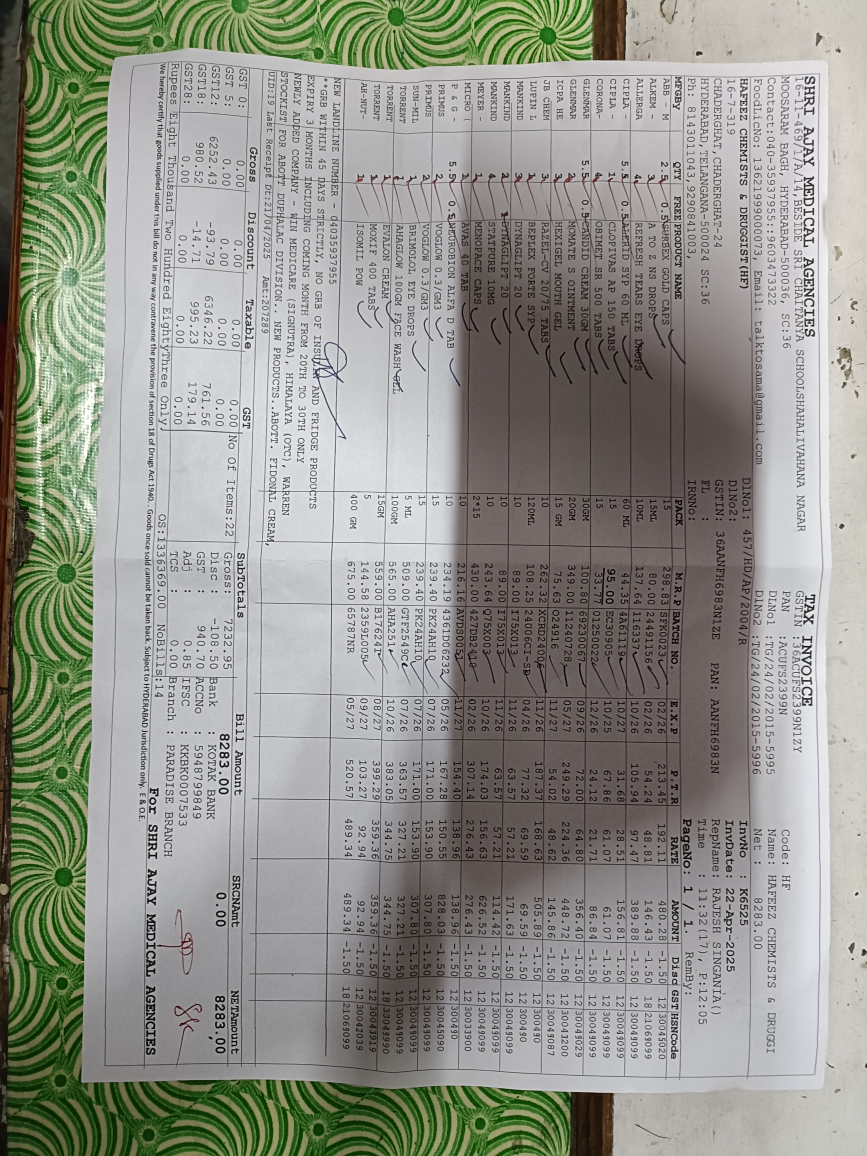 SHRI AJAY MEDICAL AGENCIES TAX INVOICE
16-11-469/7/A/14,BESIDE SRI CHAITANYA SCHOOLSHAHALIVAHANA NAGAR GSTIN :36ACUFS2399N1ZY Code: HF
MOOSARAM BAGH, HYDERABAD-500036, SC:36 PAN :ACUFS2399N Name: HAFEEZ CHEMISTS & DRUGGI
Contact:040-35937955::9603473322 DLNo1 :TG/24/02/2015-5995 Net : 8283.00
FoodLicNo: 13621999000073, Email: talktosama@gmail.com DlNo2 :TG/24/02/2015-5996
HAFEEZ CHEMISTS & DRUGGIST(HF) DlNo1: 457/HD/AP/2004/R InvNo : K6525
16-7-319 DlNo2: InvDate: 22-Apr-2025
CHADERGHAT,CHADERGHAT-24 GSTIN: 36AANFH6983N1ZE PAN: AANFH6983N RepName: RAJESH SINGANIA()
HYDERABAD,TELANGANA-500024 SC:36 FL : Time : 11:32(17), P:12:05
Ph: 8143011043,9290841003, IRNNo: PageNo: 1 / 1. RemBy:
MFGBy QTY FREE PRODUCT NAME PACK M.R.P BATCH NO. E.X.P P.T.R RATE AMOUNT Disc GST HSNCode
ABB - M 2.5 0.5 GOLD CAPS 15 298.83 SFK0023 02/26 213.45 192.11 480.28 -1.50 12 30045020
ALKEM - 3 A TO Z NS DROPS 15ML 80.00 24491156 02/26 54.24 48.81 146.43 -1.50 18 21069099
ALLERGA 4 REFRESH TEARS EYE DROPS 10ML 137.64 116337 10/26 105.94 97.47 389.88 -1.50 12 30049099
CIPLA - 5.5 0.5 SYP 60 ML 60 ML 44.35 4A61119 10/27 31.68 28.51 156.81 -1.50 12 30049099
CIPLA - 1 CLOPIVAS AP 150 TABS 15 95.00 EC30905 10/25 67.86 61.07 61.07 -1.50 12 30049099
CORONA- 4 COBIMET SR 500 TABS 15 33.77 01250022 12/26 24.12 21.71 86.84 -1.50 12 30049099
GLENMAR 5.5 0.5 CANDID CREAM 30GM 30GM 100.80 69230067 09/26 72.00 64.80 356.40 -1.50 12 30049029
GLENMAR 2 MOMATE S OINTMENT 20GM 349.00 11240728 05/27 249.29 224.36 448.72 -1.50 12 30043200
ICPA HE 3 HEXIGEL MOUTH GEL 15 GM 75.63 O24916 11/27 54.02 48.62 145.86 -1.50 12 30049087
JB CHEM 3 RAZEL-CV 20/75 TABS 10 262.32 XCRD24006 11/26 187.37 168.63 505.89 -1.50 12 300490
LUPIN L 1 BEPLEX FORTE SYP 120ML 108.25 24006CI-SD 04/26 77.32 69.59 69.59 -1.50 12 300490
MANKIND 3 DYNAGLIPT 20 10 89.00 I75X013 11/26 63.57 57.21 171.63 -1.50 12 30049099
MANKIND 2 DYNAGLIPT 20 10 89.00 I75X013 11/26 63.57 57.21 114.42 -1.50 12 30049099
MANKIND 4 STATPURE 10MG 10 243.64 Q75X003 10/26 174.03 156.63 626.52 -1.50 12 30049099
MEYER - 1 MENOPACE CAPS 2*15 430.00 427DB2410 02/26 307.14 276.43 276.43 -1.50 12 30049099
MICRO L 1 AVAS 40 TAB 10 216.16 AVDS0051 11/27 154.40 138.96 138.96 -1.50 12 30033900
P & G - 5.5 0.5 NEUROBION ALFA D TAB 10 234.19 4361D06232 05/26 167.28 150.55 828.03 -1.50 12 300490
PRIMUS 2 VOGLOW 0.3/GM3 15 239.40 PK24AH10 07/26 171.00 153.90 307.80 -1.50 12 30045090
PRIMUS 2 VOGLOW 0.3/GM3 15 239.40 PK24AH10 07/26 171.00 153.90 307.80 -1.50 12 30049099
SUN-MIL 1 BRIMOLOL EYE DROPS 5 ML 509.00 GTF2549C 07/26 363.57 327.21 327.21 -1.50 12 30049099
TORRENT 1 AHAGLOW 100GM FACE WASH GEL 100GM 565.00 AHA251 10/26 383.05 344.75 344.75 -1.50 18 33049990
TORRENT 1 EVALON CREAM 15GM 559.00 B176241 08/27 399.29 359.36 359.36 -1.50 12 30043919
TORRENT 1 MOXIF 400 TABS 5 144.58 B259L005 09/27 103.27 92.94 92.94 -1.50 12 30042039
AB-NUT- 1 ISOMIL POW 400 GM 675.00 65787NR 05/27 520.57 489.34 489.34 -1.50 18 21069099
NEW LANDLINE NUMBER - 04035937955
**GRB WITHIN 45 DAYS STRICTLY, NO GRB OF INSULIN AND FRIDGE PRODUCTS
EXPIRY 3 MONTHS INCLUDING COMING MONTH FROM 20TH TO 30TH ONLY
NEWLY ADDED COMPANY - WIN MEDICARE (SIGNUTRA), HIMALAYA (OTC), WARREN
STOCKIST FOR ABOTT DUPHALAC DIVISION.. NEW PRODUCTS..ABOTT. FIDONAL CREAM,
UID:19 Last Receipt Dt:21/04/2025 Amt:207289
Gross Discount Taxable GST SubTotals Bill Amount SRCNAmt NETAmount
GST 0: 0.00 0.00 0.00 0.00 No Of Items:22 Gross: 7232.95 8283.00 0.00 8283.00
GST 5: 0.00 0.00 0.00 0.00 Disc : -108.50 Bank : KOTAK BANK
GST12: 6252.43 -93.79 6346.22 761.56 GST : 940.70 ACCNo : 5948799849
GST18: 980.52 -14.71 995.23 179.14 Adj : 0.85 IFSC : KKBK0007533
GST28: 0.00 0.00 0.00 0.00 TCS : 0.00 Branch : PARADISE BRANCH
Rupees Eight Thousand Two Hundred EightyThree Only. OS:1336369.00 NoBills:14 For SHRI AJAY MEDICAL AGENCIES
We hereby certify that goods supplied under this bill do not in any way contravene the provision of section 18 of Drugs Act 1940. . Goods once sold cannot be taken back. Subject to HYDERABAD Jurisdiction only. E & O.E.